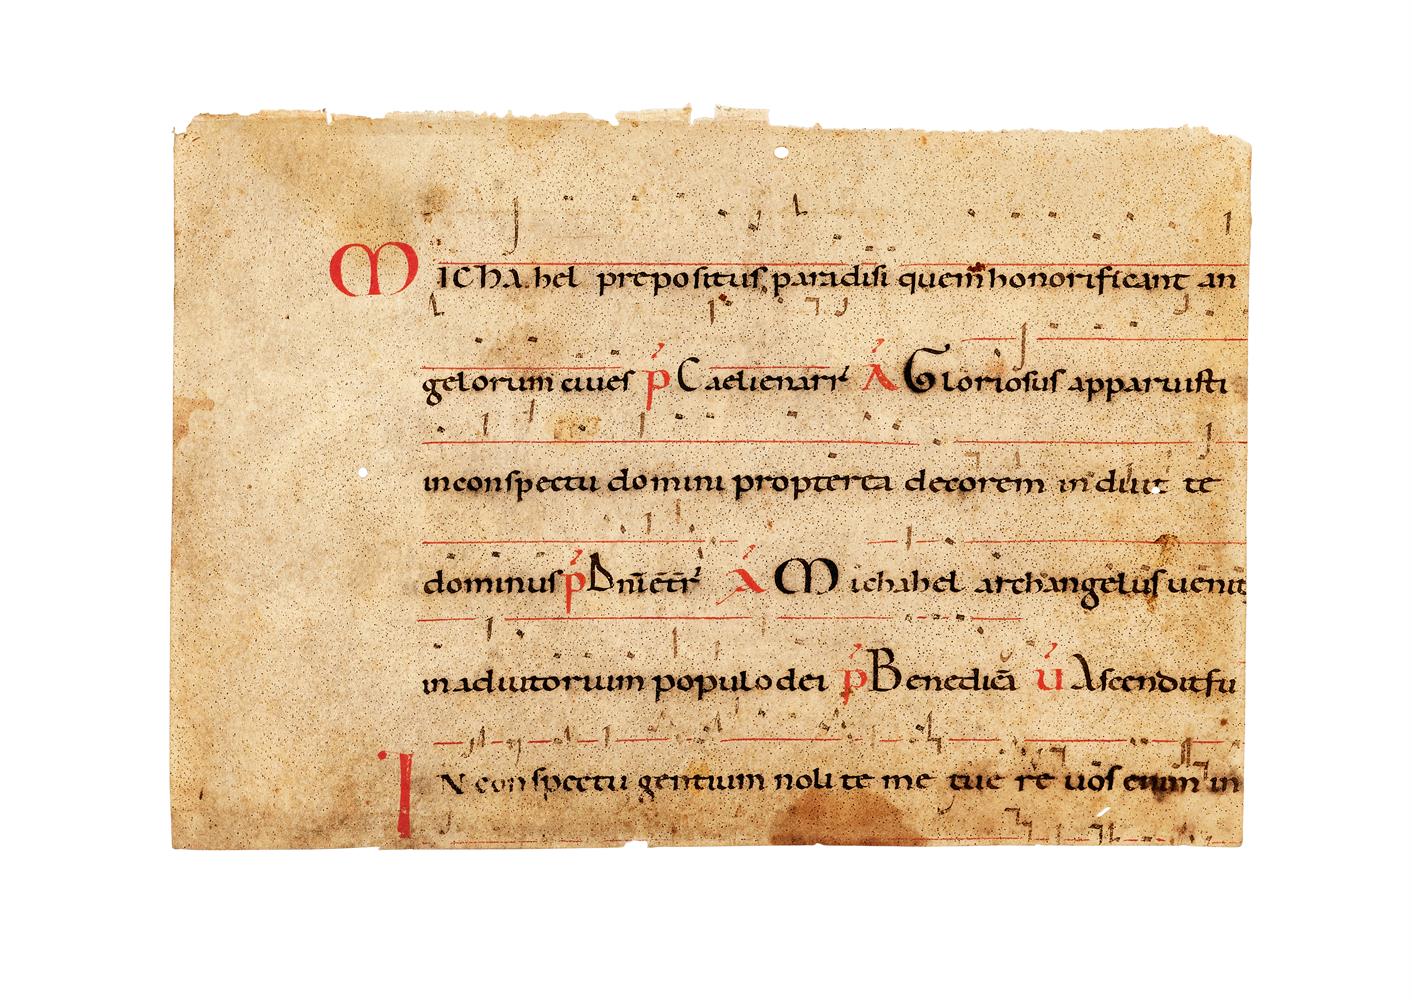 Micha.hel prepositus paradisi quem honorificant an
gelorum ciues p Caelienarr A Gloriosus apparuisti
inconspectu domini propterea decorem induit te
dominus p Dn̄īētr̄ A Michahel archangelus uenit
inadiutorium populo dei p Benedicā u Ascenditfu
IN conspectu gentium nolite me tue re uos enim in